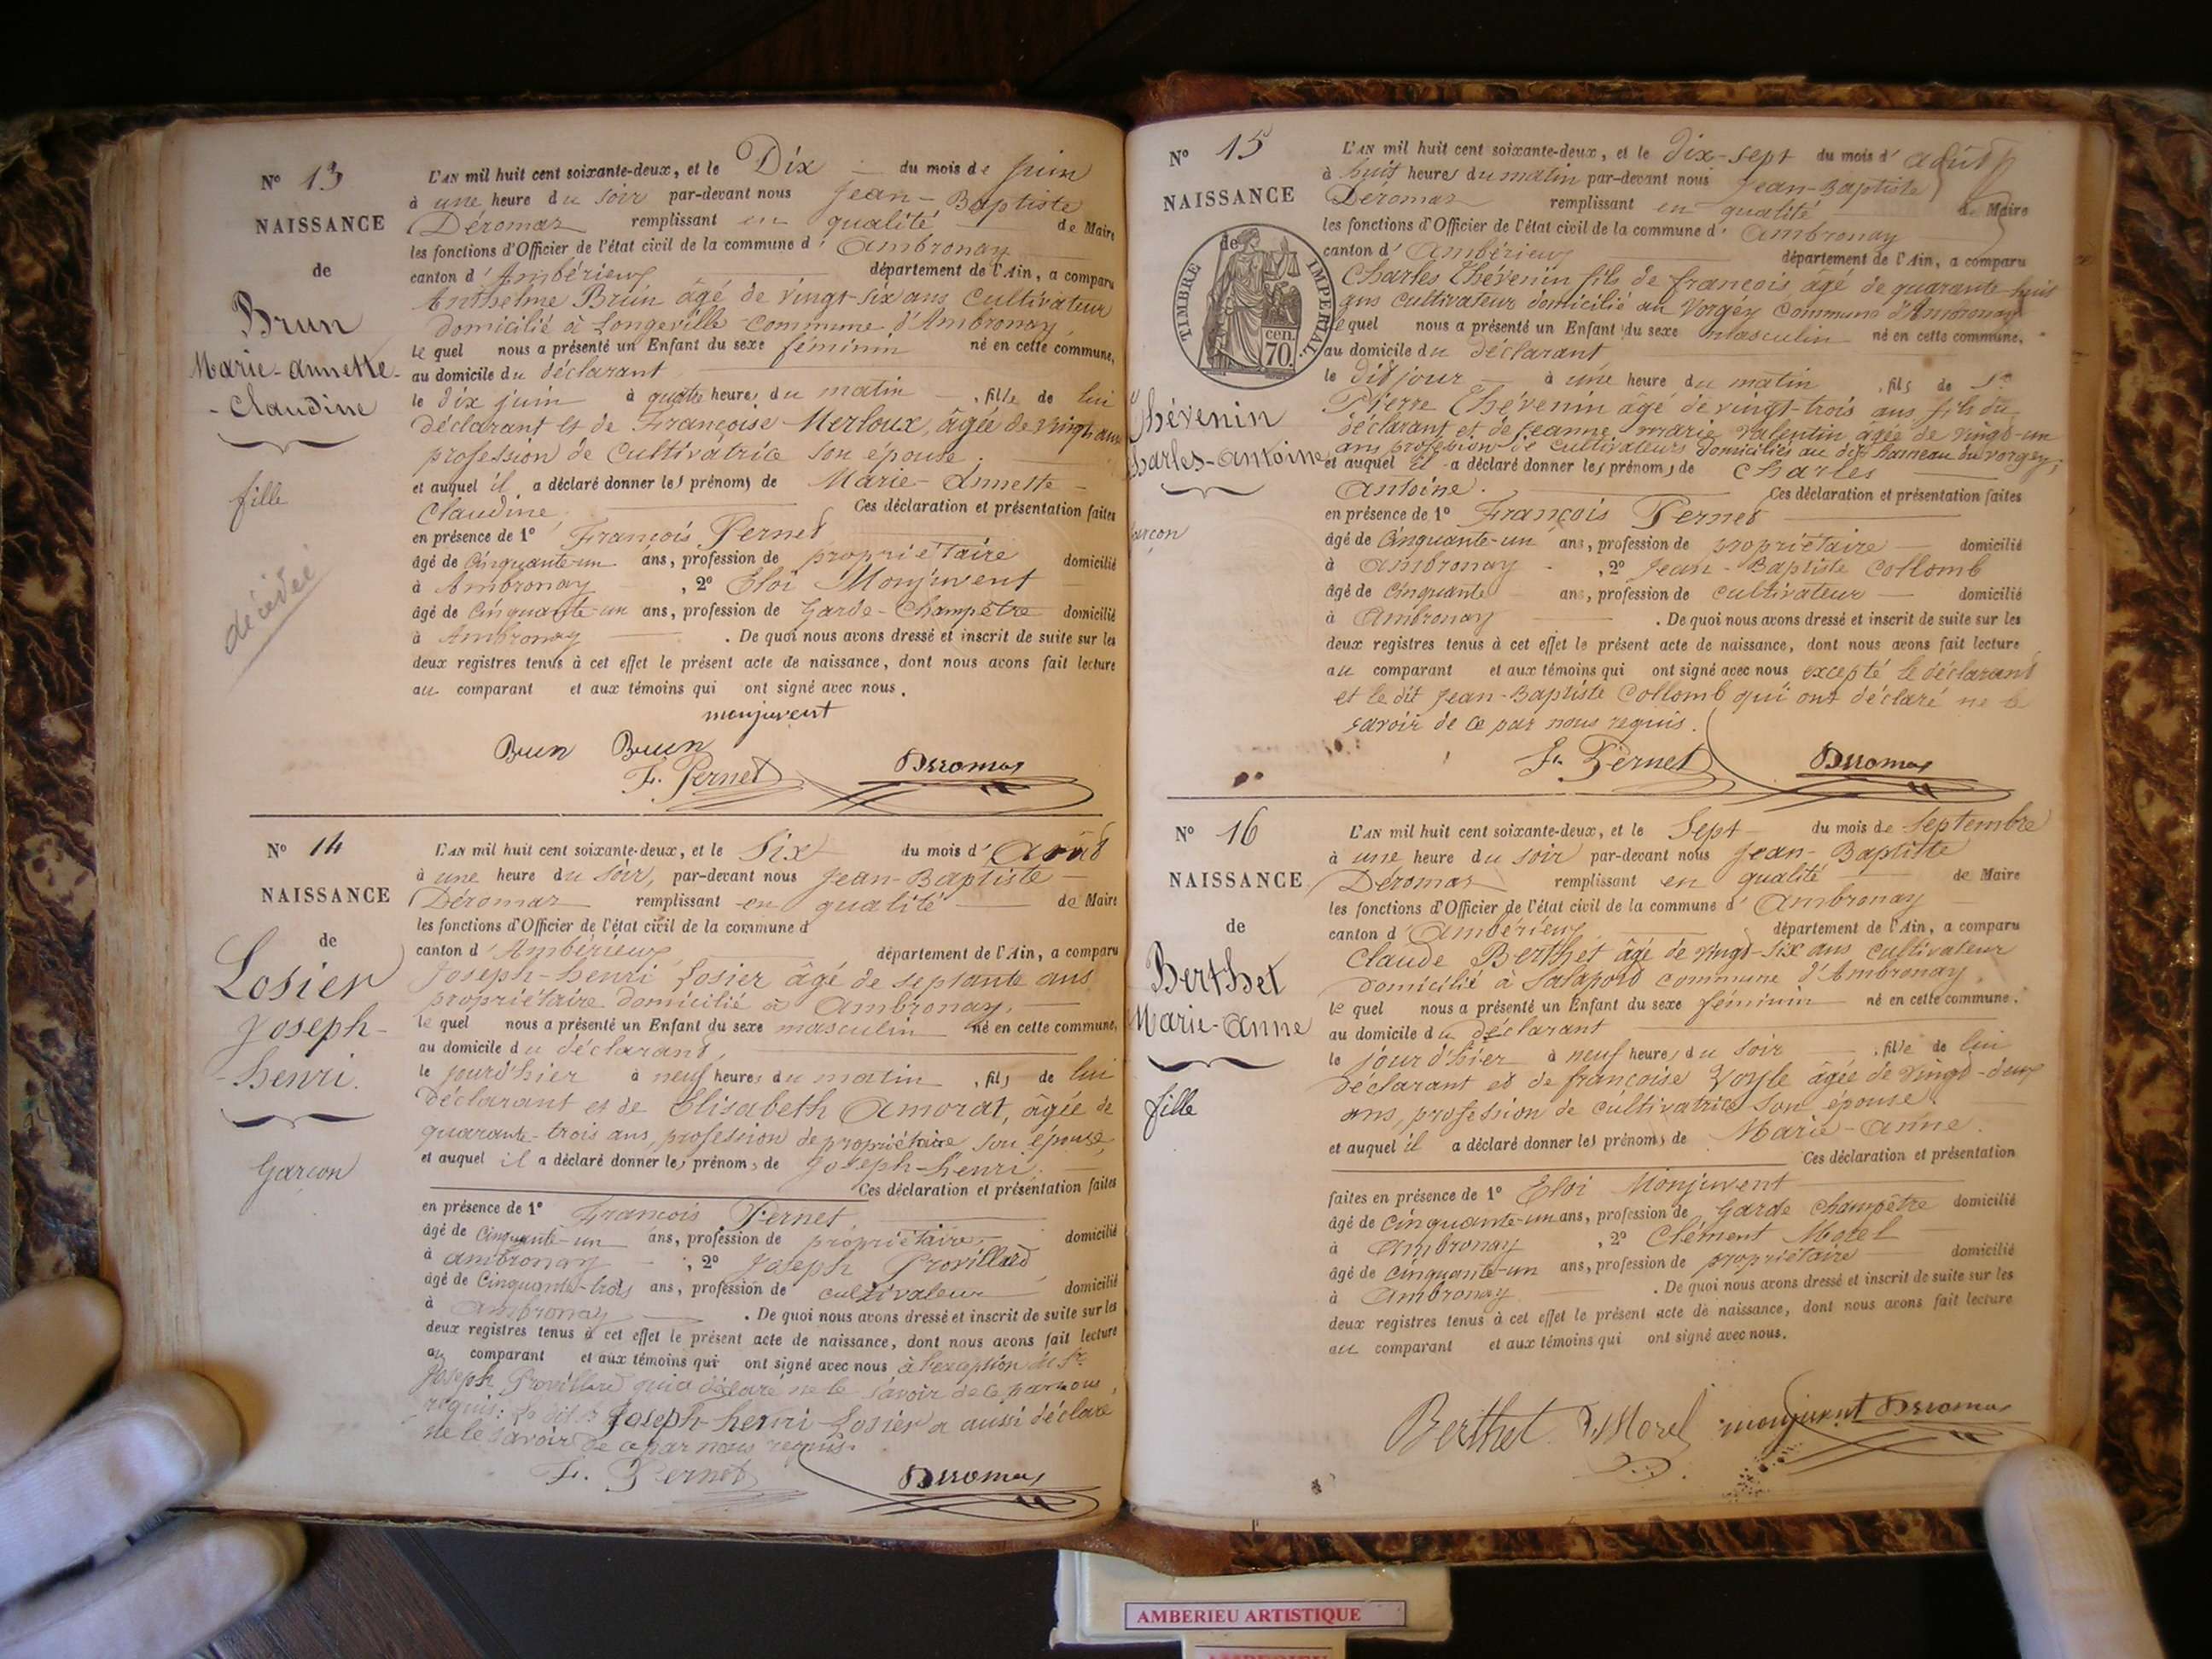 N° 13
NAISSANCE
de
Brun
Marie-Annette-
-Claudine
fille
décédée
L'AN mil huit cent soixante-deux, et le Dix du mois de Juin
à une heure du soir par-devant nous Jean-Baptiste
Déromas remplissant en qualité de Maire
les fonctions d'Officier de l'état civil de la commune d'Ambronay
canton d'Ambérieux département de l'Ain, a comparu
Anthelme Brun âgé de vingt-six ans, Cultivateur
domicilié à Longeville commune d'Ambronay,
lequel nous a présenté un Enfant du sexe féminin né en cette commune,
au domicile du déclarant
le dix juin à quatre heures du matin, fille de lui
déclarant et de Françoise Merloux, âgée de vingt ans
profession de Cultivatrice son épouse.
et auquel il a déclaré donner les prénoms de Marie-Annette-
Claudine. Ces déclaration et présentation faites
en présence de 1° François Pernet
âgé de Cinquante-un ans, profession de propriétaire domicilié
à Ambronay, 2° Eloi Monjuvent
âgé de Cinquante-un ans, profession de Garde-Champêtre domicilié
à Ambronay. De quoi nous avons dressé et inscrit de suite sur les
deux registres tenus à cet effet le présent acte de naissance, dont nous avons fait lecture
au comparant et aux témoins qui ont signé avec nous.
monjuvent
Brun Brun
F. Pernet Deromas
N° 14
NAISSANCE
de
Losier
Joseph-
-henri.
Garçon
L'AN mil huit cent soixante-deux, et le Six du mois d'Août
à une heure du soir, par-devant nous Jean-Baptiste
Déromas remplissant en qualité de Maire
les fonctions d'Officier de l'état civil de la commune d
canton d'Ambérieux département de l'Ain, a comparu
Joseph-henri Losier âgé de septante ans
propriétaire domicilié à Ambronay,
lequel nous a présenté un Enfant du sexe masculin né en cette commune,
au domicile du déclarant,
le jour d'hier à neuf heures du matin, fils de lui
déclarant et de Elisabeth Amorat, âgée de
quarante-trois ans, profession de propriétaire son épouse,
et auquel il a déclaré donner les prénoms de Joseph-henri.
Ces déclaration et présentation faites
en présence de 1° François Pernet
âgé de Cinquante-un ans, profession de propriétaire domicilié
à ambronay, 2° Joseph Provillard
âgé de Cinquante-trois ans, profession de cultivateur domicilié
à Ambronay. De quoi nous avons dressé et inscrit de suite sur les
deux registres tenus à cet effet le présent acte de naissance, dont nous avons fait lecture
au comparant et aux témoins qui ont signé avec nous à l'exception du Sr
Joseph Provillard qui a déclaré ne le savoir de ce par nous
requis: Le dit Sr Joseph-henri Losier a aussi déclaré
ne le savoir de ce par nous requis.
F. Pernet Deromas
N° 15
NAISSANCE
de
TIMBRE IMPERIAL
70 cen.
Thévenin
Charles-Antoine
garçon
L'AN mil huit cent soixante-deux, et le dix-sept du mois d'août
à huit heures du matin par-devant nous Jean-Baptiste
Déromas remplissant en qualité de Maire
les fonctions d'Officier de l'état civil de la commune d'Ambronay
canton d'Ambérieux département de l'Ain, a comparu
Charles Thévenin fils de françois âgé de quarante-huit
ans cultivateur domicilié au Vorgey Commune d'Ambronay
lequel nous a présenté un Enfant du sexe masculin né en cette commune,
au domicile du déclarant
le dit jour à une heure du matin, fils de Sr
Pierre Thévenin âgé de vingt-trois ans, fils du
déclarant et de Jeanne marie Valentin âgée de vingt-un
ans profession de cultivateurs domiciliés au dit hameau du vorgey,
et auquel il a déclaré donner les prénoms de Charles
Antoine. Ces déclaration et présentation faites
en présence de 1° François Pernet
âgé de Cinquante-un ans, profession de propriétaire domicilié
à Ambronay, 2° Jean-Baptiste Collomb
âgé de Cinquante ans, profession de cultivateur domicilié
à Ambronay. De quoi nous avons dressé et inscrit de suite sur les
deux registres tenus à cet effet le présent acte de naissance, dont nous avons fait lecture
au comparant et aux témoins qui ont signé avec nous excepté le déclarant
et le dit Jean-Baptiste Collomb qui ont déclaré ne le
savoir de ce par nous requis.
F. Pernet Deromas
N° 16
NAISSANCE
de
Berthet
Marie-Anne
fille
L'AN mil huit cent soixante-deux, et le Sept du mois de Septembre
à une heure du soir par-devant nous Jean-Baptiste
Déromas remplissant en qualité de Maire
les fonctions d'Officier de l'état civil de la commune d'Ambronay
canton d'Ambérieux département de l'Ain, a comparu
Claude Berthet âgé de vingt-six ans cultivateur
domicilié à Salaport commune d'Ambronay,
lequel nous a présenté un Enfant du sexe féminin né en cette commune.
au domicile du déclarant
le jour d'hier à neuf heures du soir, fille de lui
déclarant et de françoise Voyle âgée de vingt-deux
ans, profession de cultivatrice son épouse.
et auquel il a déclaré donner les prénoms de Marie-Anne.
Ces déclaration et présentation
faites en présence de 1° Eloi Monjuvent
âgé de cinquante-un ans, profession de Garde Champêtre domicilié
à Ambronay, 2° Clément Morel
âgé de cinquante-un ans, profession de propriétaire domicilié
à Ambronay. De quoi nous avons dressé et inscrit de suite sur les
deux registres tenus à cet effet le présent acte de naissance, dont nous avons fait lecture
au comparant et aux témoins qui ont signé avec nous.
Berthet Morel monjuvent Deromas
AMBERIEU ARTISTIQUE